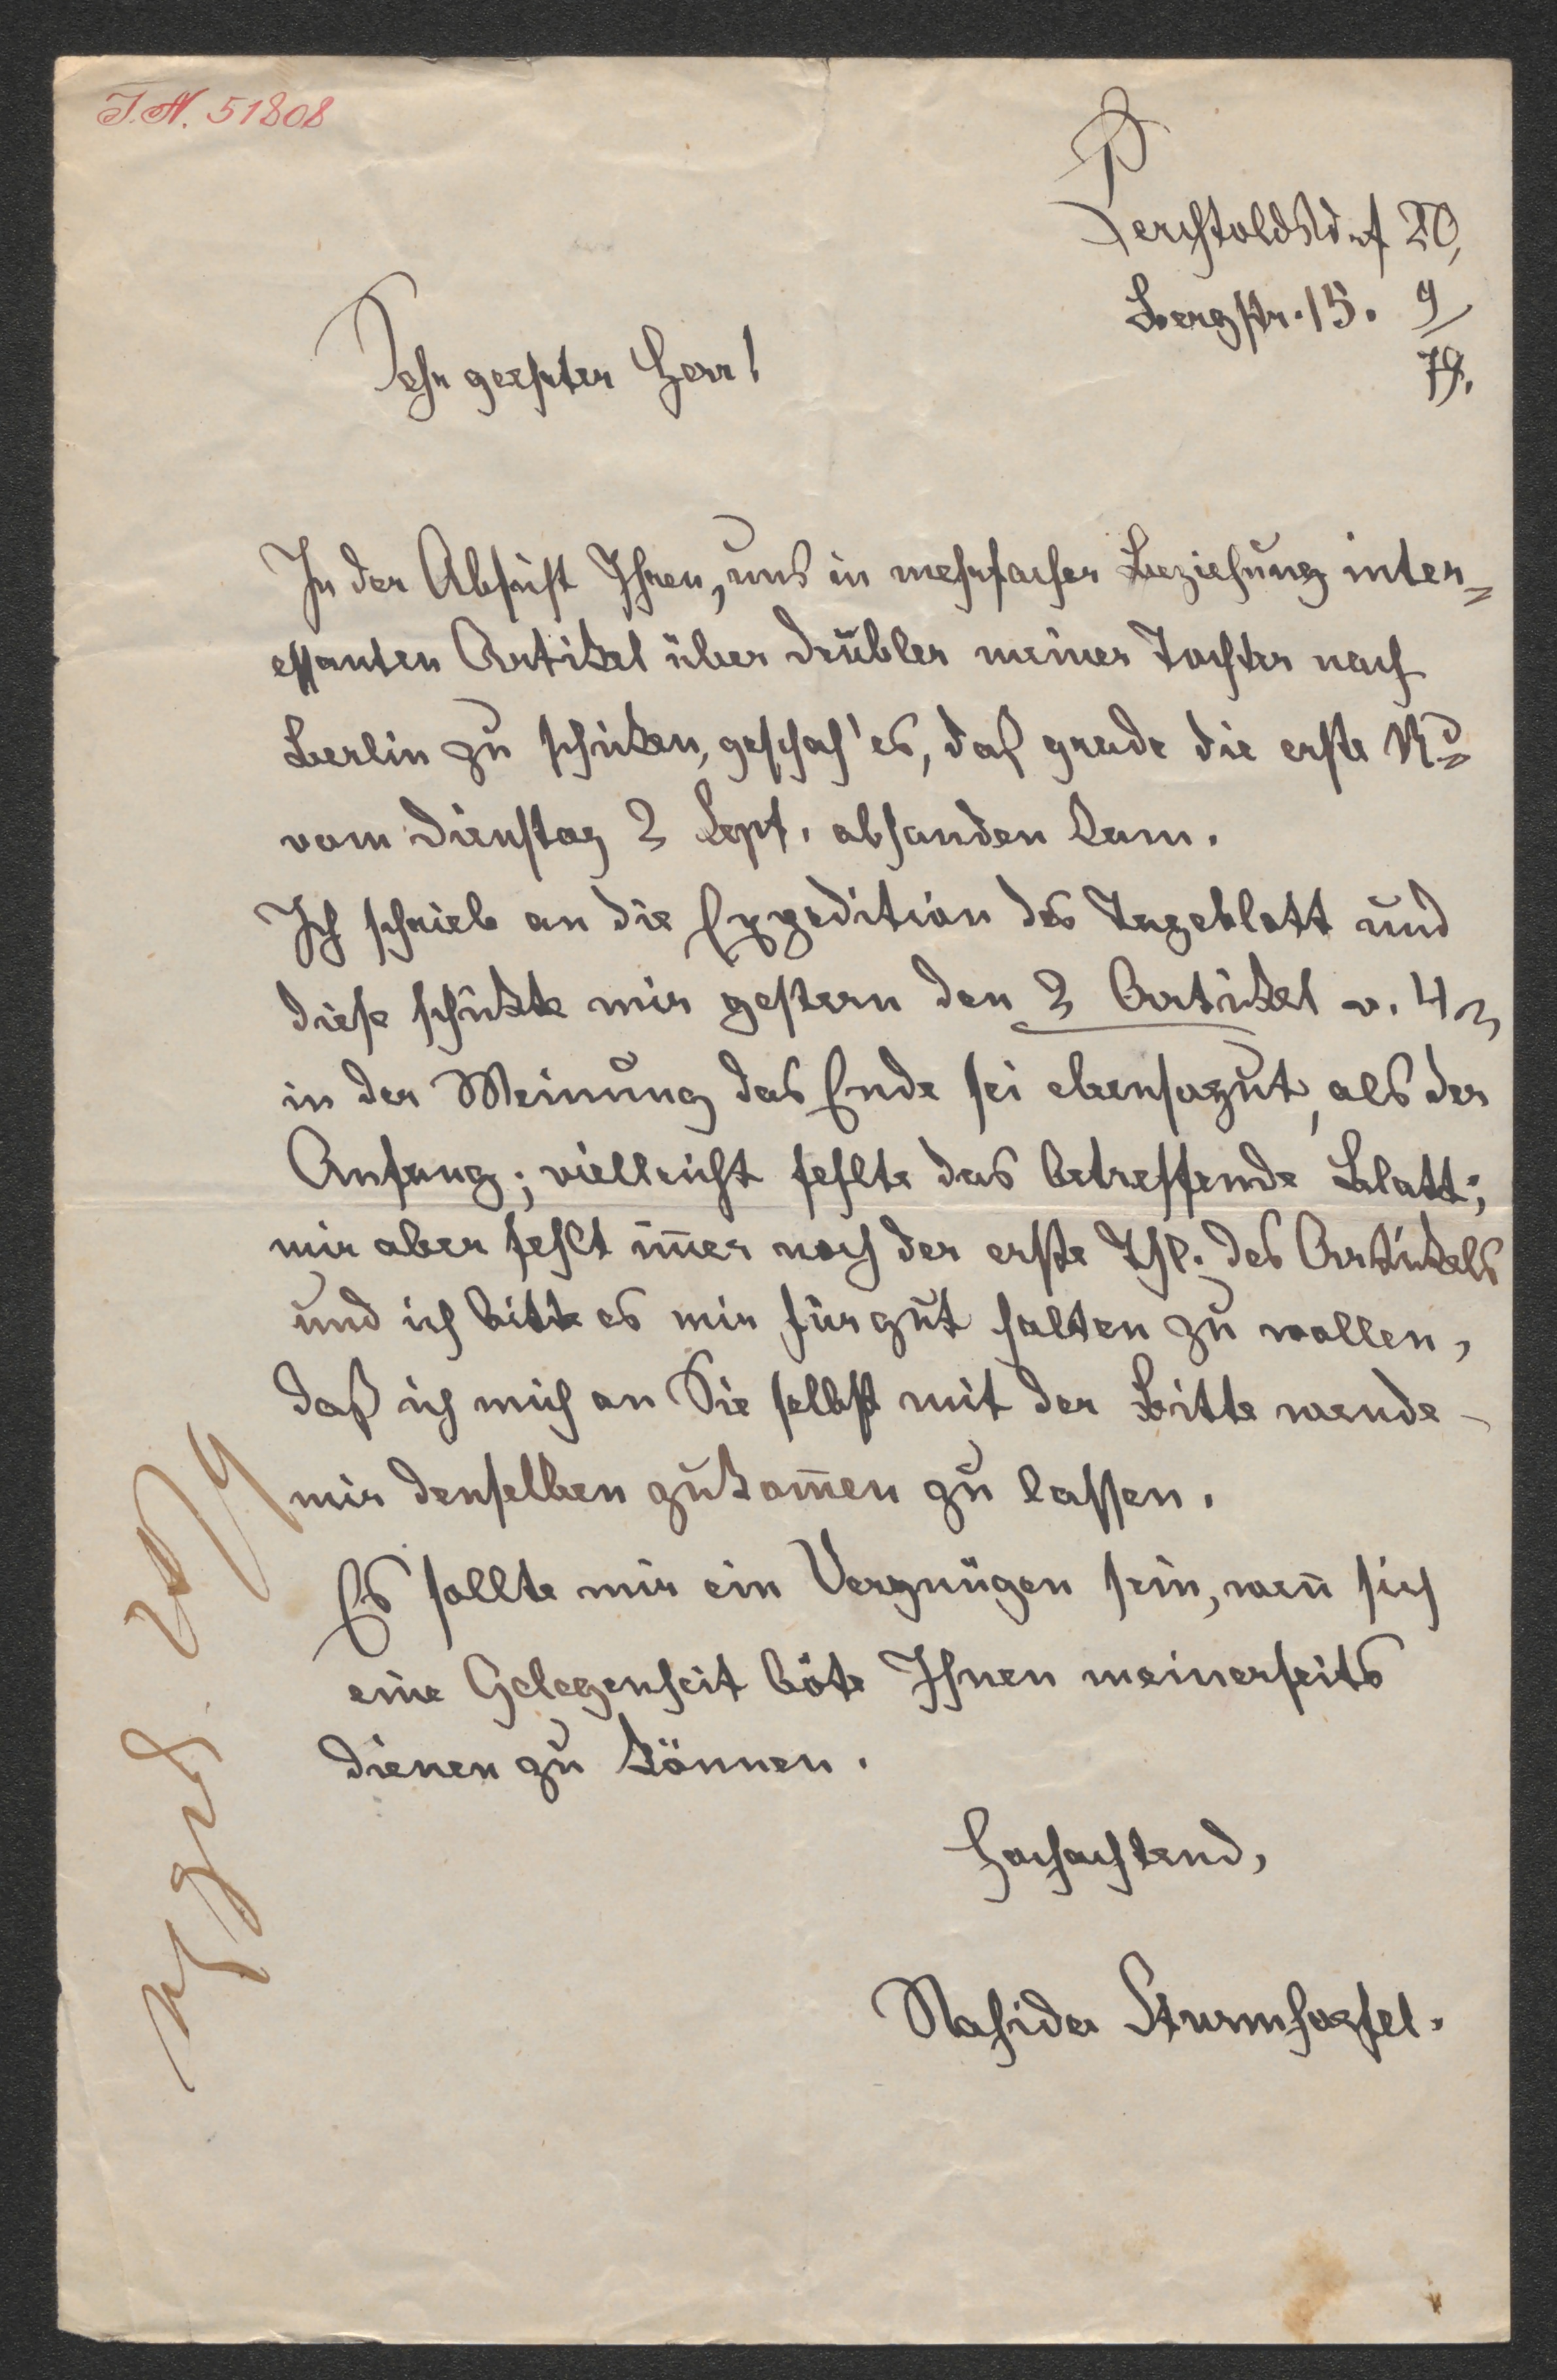 I.N. 51808
Perchtoldsdrf 20,
Bergstr. 15. 9/
79.
Sehr geehrter Herr!
In der Absicht Ihren, uns in mehrfacher Beziehung inter=
essanten Artikel über Deubler meiner Tochter nach
Berlin zu schicken, geschah' es, daß grade die erste Nr
vom Dienstag 2 Sept. abhanden kam.
Ich schrieb an die Expedition des Tageblatt und
diese schickte mir gestern den 2 Artikel v. 4
in der Meinung das Ende sei ebensogut, als der
Anfang; vielleicht fehlte das betreffende Blatt;
mir aber fehlt im̄er noch der erste Thl. des Artikels
und ich bitte es mir für gut halten zu wollen,
daß ich mich an Sie selbst mit der Bitte wende
mir denselben zukom̄en zu lassen.
Es sollte mir ein Vergnügen sein, wen̄ sich
eine Gelegenheit böte Ihnen meinerseits
dienen zu können.
Hochachtend,
Nahida Sturmhoefel.